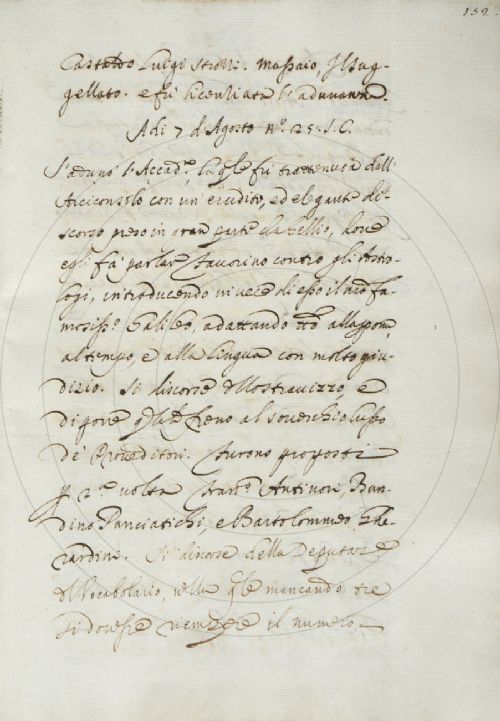 159.
Castaldo Luigi Strozzi. Massaio, Il Sug-
gellato. e fu licenziata l'adunanza.
Adi 7 d'Agosto n.º 125. I. C.
S'adunò l'Accad.ª la qle fu trattenuta dall'
Arciconsolo con un erudito, ed elegante di-
scorso preso in gran parte da Gellio, dove
egli fa parlare Favorino contro gli Astro-
logi, introducendo in vece di esso il nro fa-
mosiss.º Galileo, adattando tto
al tempo, e alla lingua con molto giu-
dizio. Si discorse dello Stravizzo, e
di porre qche freno al soverchio lusso
de' Proveditori. Furono proposti
p 2.ª volta Franc.º Antinori, Ban-
dino Panciatichi, e Bartolommeo Ghe-
rardini. Si discorse della Deputaze
del Vocabolario, nella qle mancando tre
si dovesse riempiere il numero.